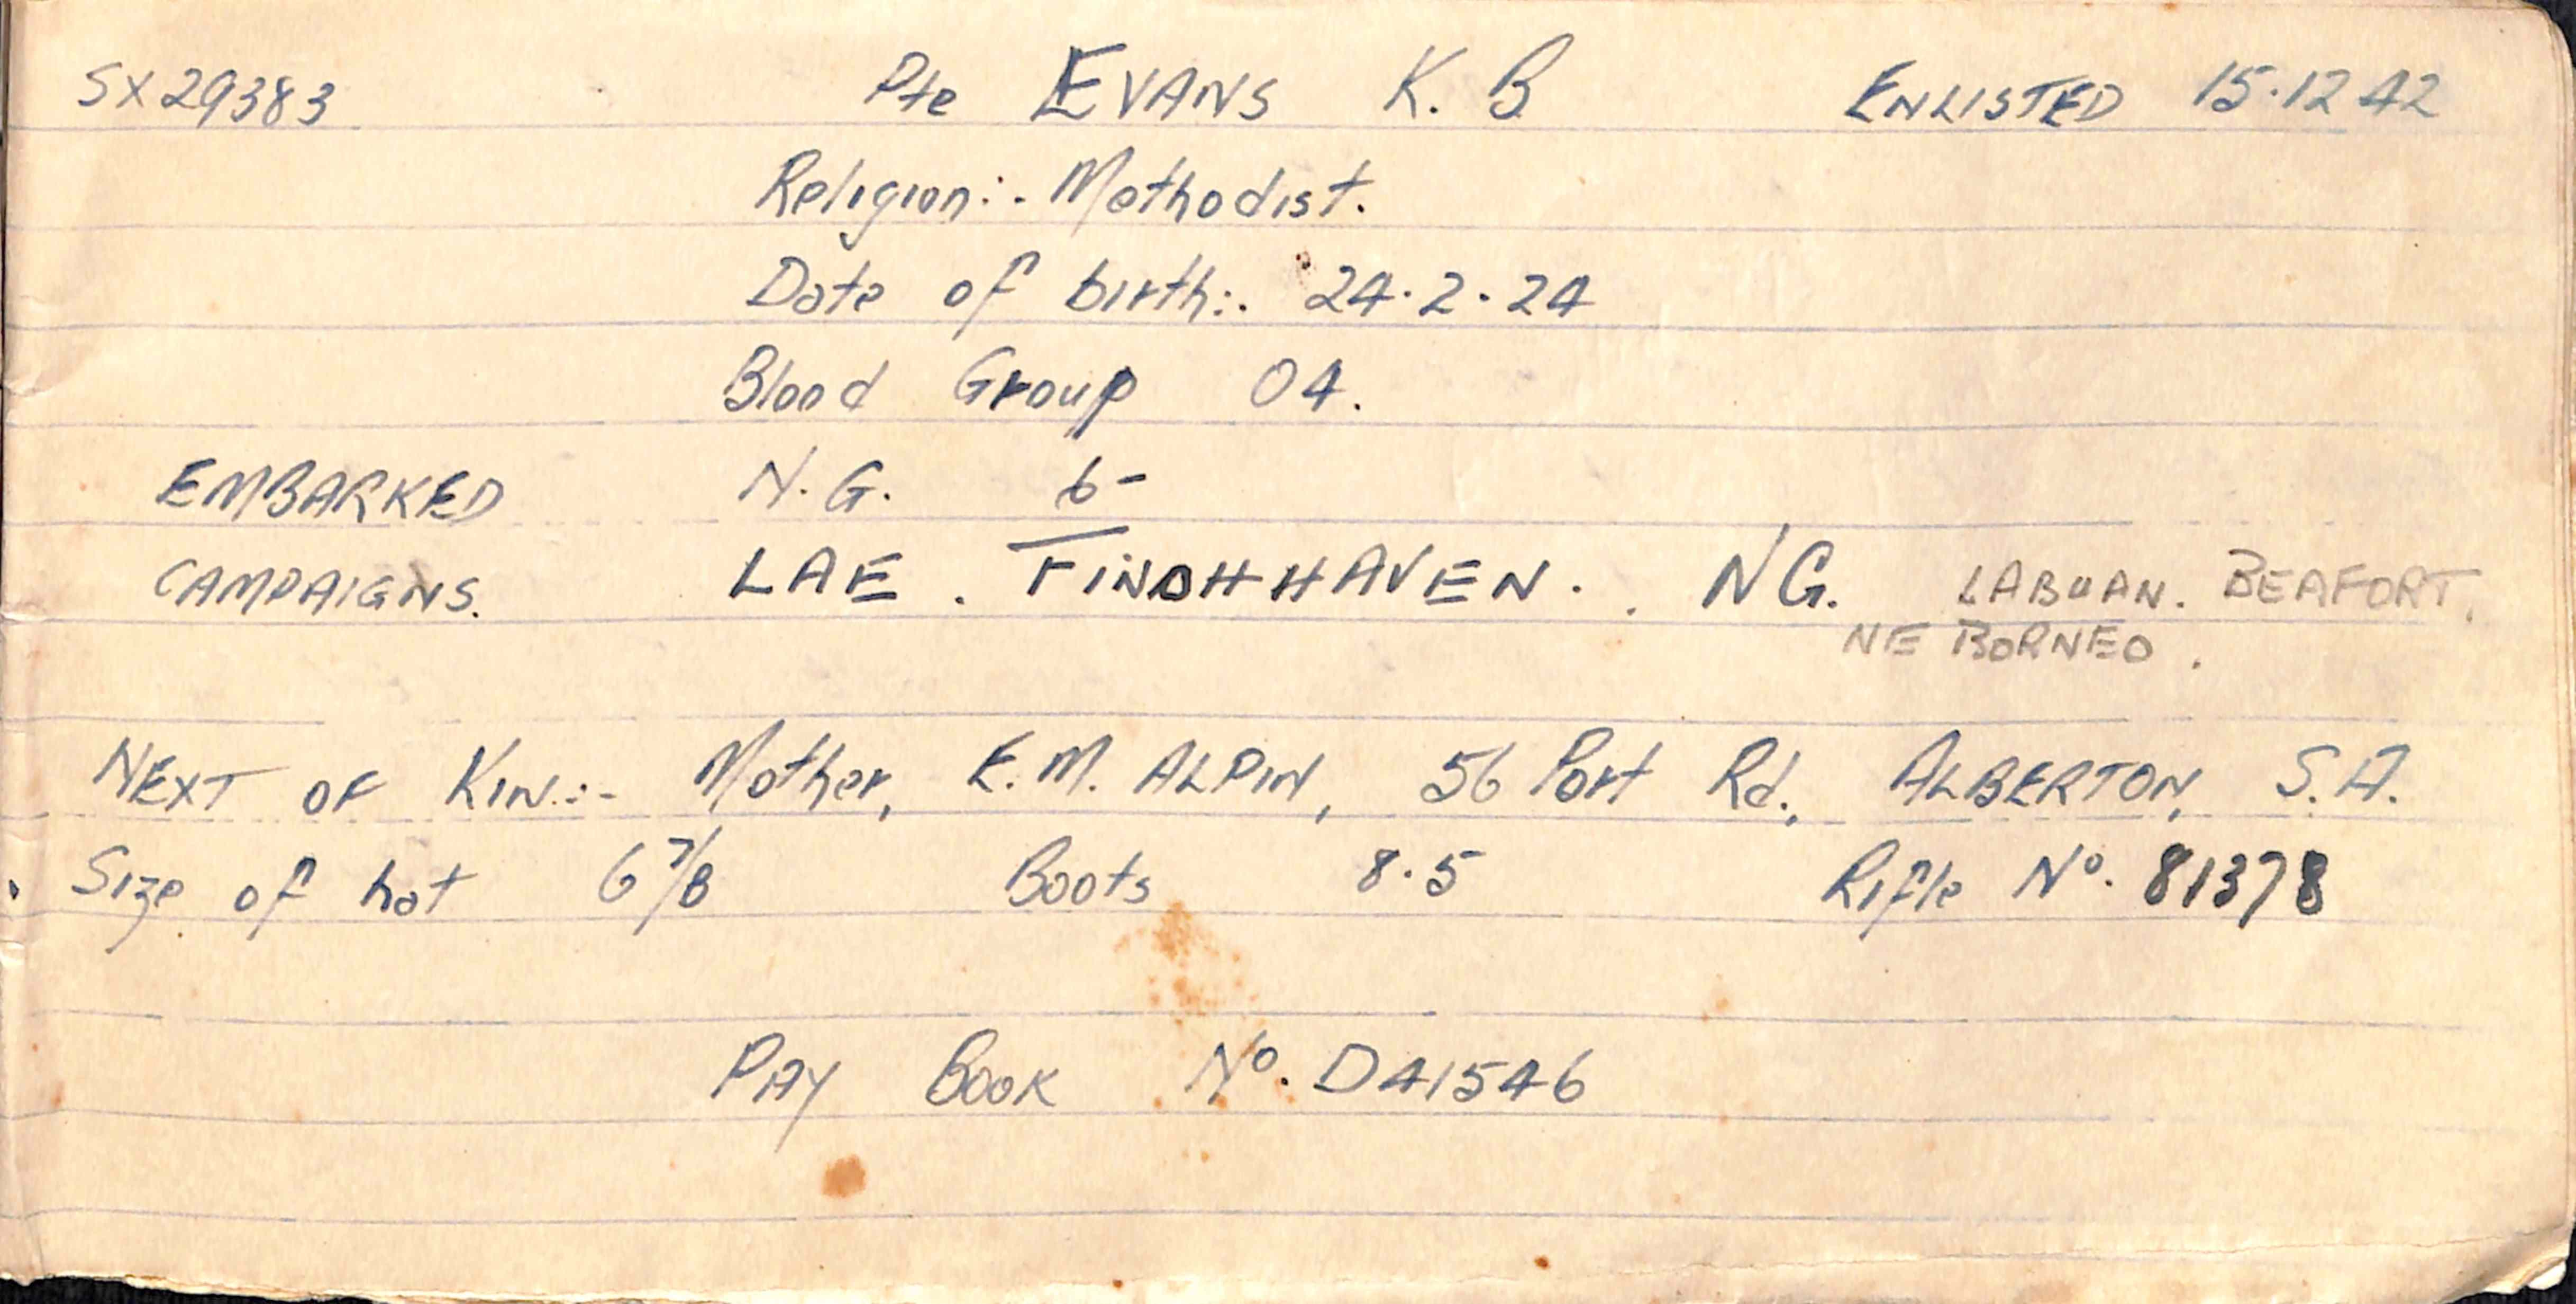 SX29383 Pte EVANS K. B ENLISTED 15.12 42
Religion:- Methodist.
Date of birth:- 24.2.24
Blood Group O4.
EMBARKED N.G. 6-
CAMPAIGNS. LAE. FINDHHAVEN. NG. LABUAN. BEAFORT.
NE BORNEO.
NEXT OF KIN:- Mother, E.M. ALPIN, 56 Port Rd, ALBERTON, S.A.
Size of hat 6 7/8 Boots 8.5 Rifle No. 81378
PAY BOOK No. D41546